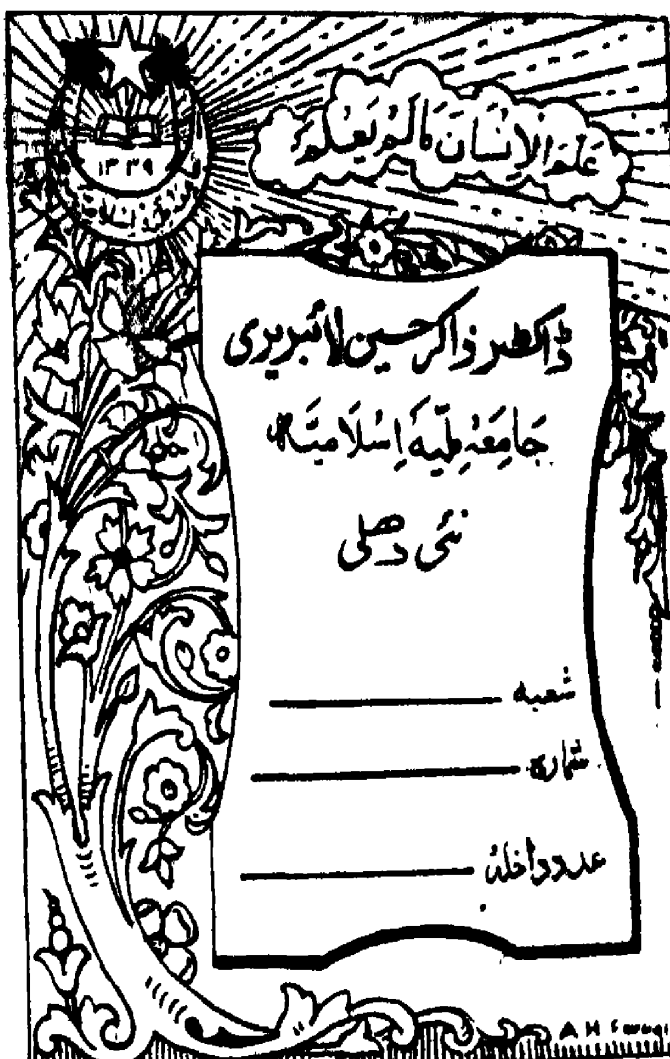 عَلَّمَ الْاِنْسَانَ مَا لَمْ يَعْلَمْ
١٣٣٩
ڈاکٹر ذاکر حسین لائبریری
جَامِعَہ مِلّیہ اِسْلَامیَہ
نئی دھلی
شعبہ
شمارہ
عدد داخلہ
A H Faruqi